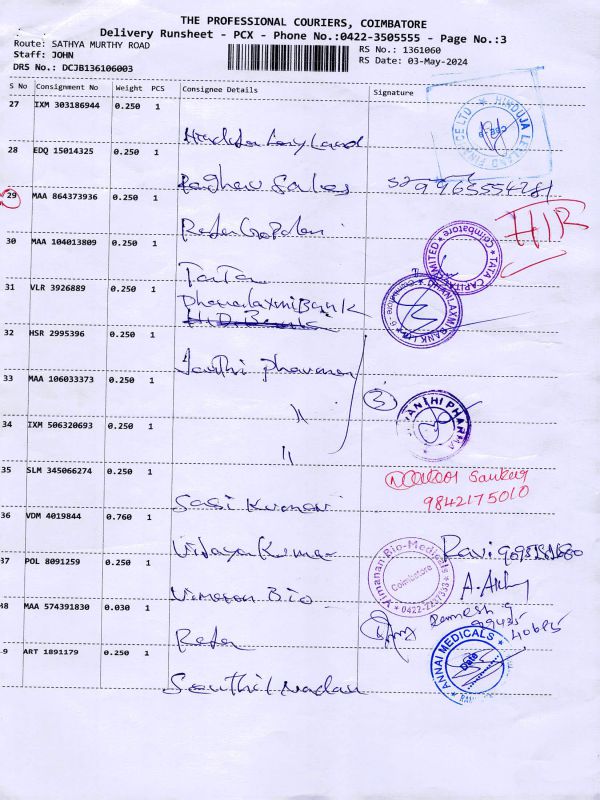 THE PROFESSIONAL COURIERS, COIMBATORE
Delivery Runsheet - PCX - Phone No.:0422-3505555 - Page No.:3
Route: SATHYA MURTHY ROAD
RS No.: 1361060
Staff: JOHN
RS Date: 03-May-2024
DRS No.: DCJB136106003
S No Consignment No Weight PCS Consignee Details Signature
27 IXM 303186944 0.250 1
HINDUJA LEYLAND FINANCE LTD
28 EDQ 15014325 0.250 1
Raghav Sales 9965554281
29 MAA 864373936 0.250 1
30 MAA 104013809 0.250 1
Tata
TATA CAPITAL LIMITED
Coimbatore
31 VLR 3926889 0.250 1
Dhanalaxmi Bank
DHANLAXMI BANK LTD
32 HSR 2995396 0.250 1
33 MAA 106033373 0.250 1
"
3
34 IXM 506320693 0.250 1
"
35 SLM 345066274 0.250 1
Sankar
9842175010
Sasi Kumar
36 VDM 4019844 0.760 1
Vijaya Kumar
Ravi
37 POL 8091259 0.250 1
Vimanan Bio-Medicals
Coimbatore
Vimanan Bio
38 MAA 574391830 0.030 1
Ramesh
99435
40685
39 ART 1891179 0.250 1
ANNAI MEDICALS
Senthil Nadan